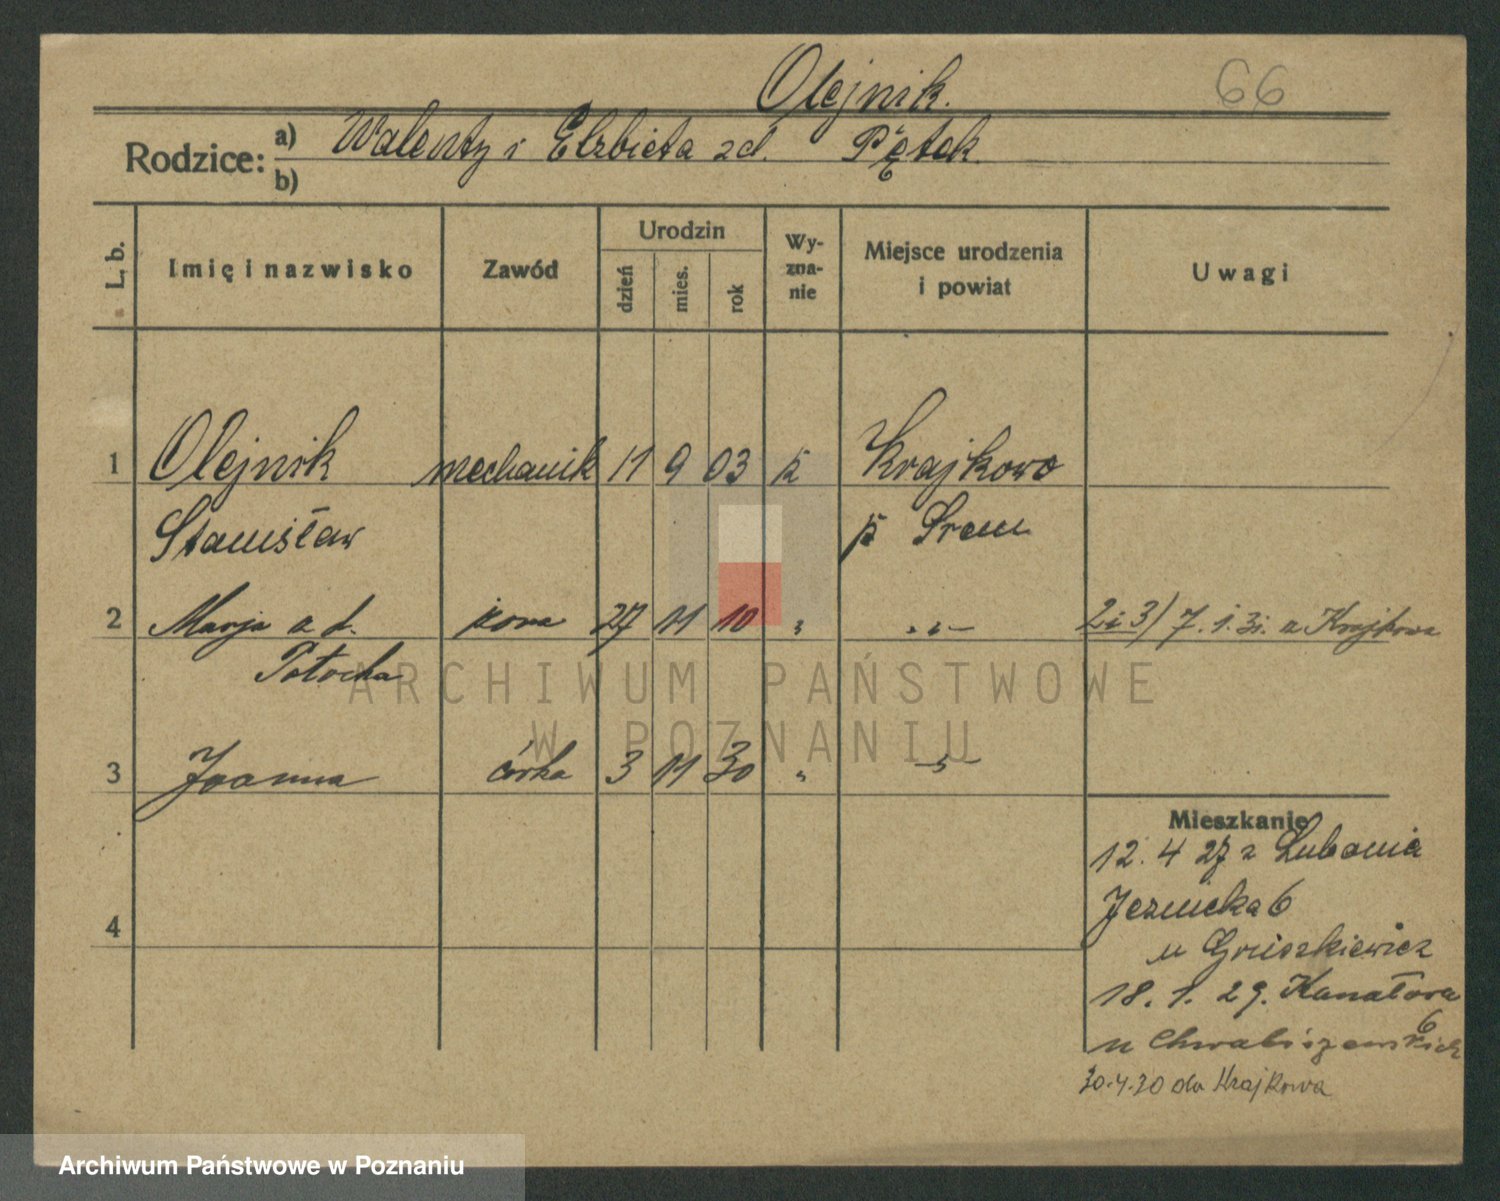 Olejnik.
66
Rodzice:
a) Walenty i Elzbieta zd. Piętek.
b)
L. b.
Imię i nazwisko
Zawód
Urodzin
dzień
mies.
rok
Wy-
zna-
nie
Miejsce urodzenia
i powiat
Uwagi
1 Olejnik mechanik 11 9 03 k Krajkowo
Stanisław p Śrem
2 Marja z d. żona 27 11 10 " " 2 i 3) 7. 1. 31. z Krajkowa
Potocka
3 Joanna córka 3 11 30 " "
Mieszkanie
12. 4 27 z Lubonia
Jeżnicka 6
u Gruszkiewicz
18. 1. 29. Kanałowa
6
u
30.4.30 do Krajkowa
4
ARCHIWUM PAŃSTWOWE
W POZNANIU
Archiwum Państwowe w Poznaniu